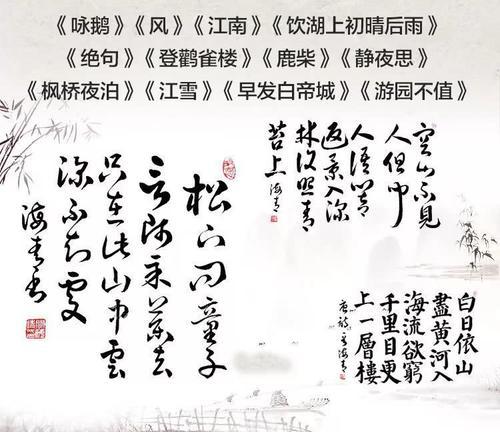 《咏鹅》《风》《江南》《饮湖上初晴后雨》
《绝句》《登鹳雀楼》《鹿柴》《静夜思》
《枫桥夜泊》《江雪》《早发白帝城》《游园不值》
空山不见
人但闻
人语响
返景入深
林复照青
苔上 海青
松下问童子
言师采药去
只在此山中雲
深不知处
海青书
白日依山
盡黄河入
海流欲窮
千里目更
上一層樓